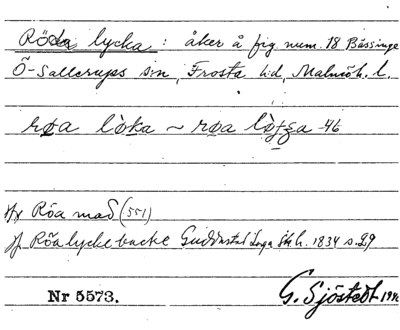 Röda lycka: åker å fig. num. 18 Bässinge
Ö-Sallerups sn, Frosta hd, Malmöh. l.
røa lòka ~ røa -46
jfr Röa mad (551)
jf Röalyckebacke h. 1834 s. 29
Nr 5573. G. Sjöstedt 194